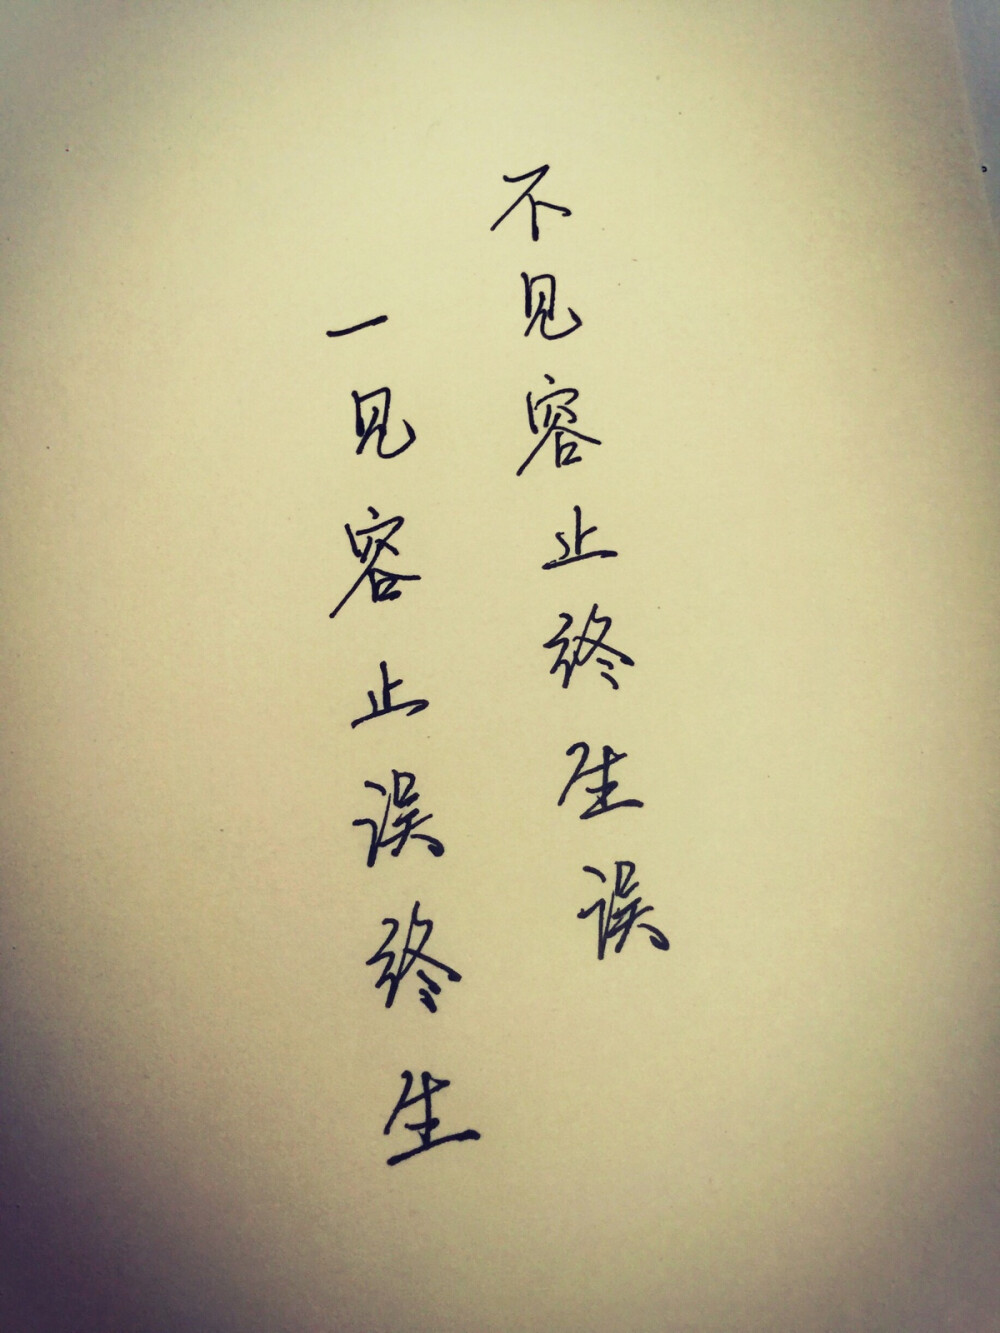 不见容止终生误
一见容止误终生